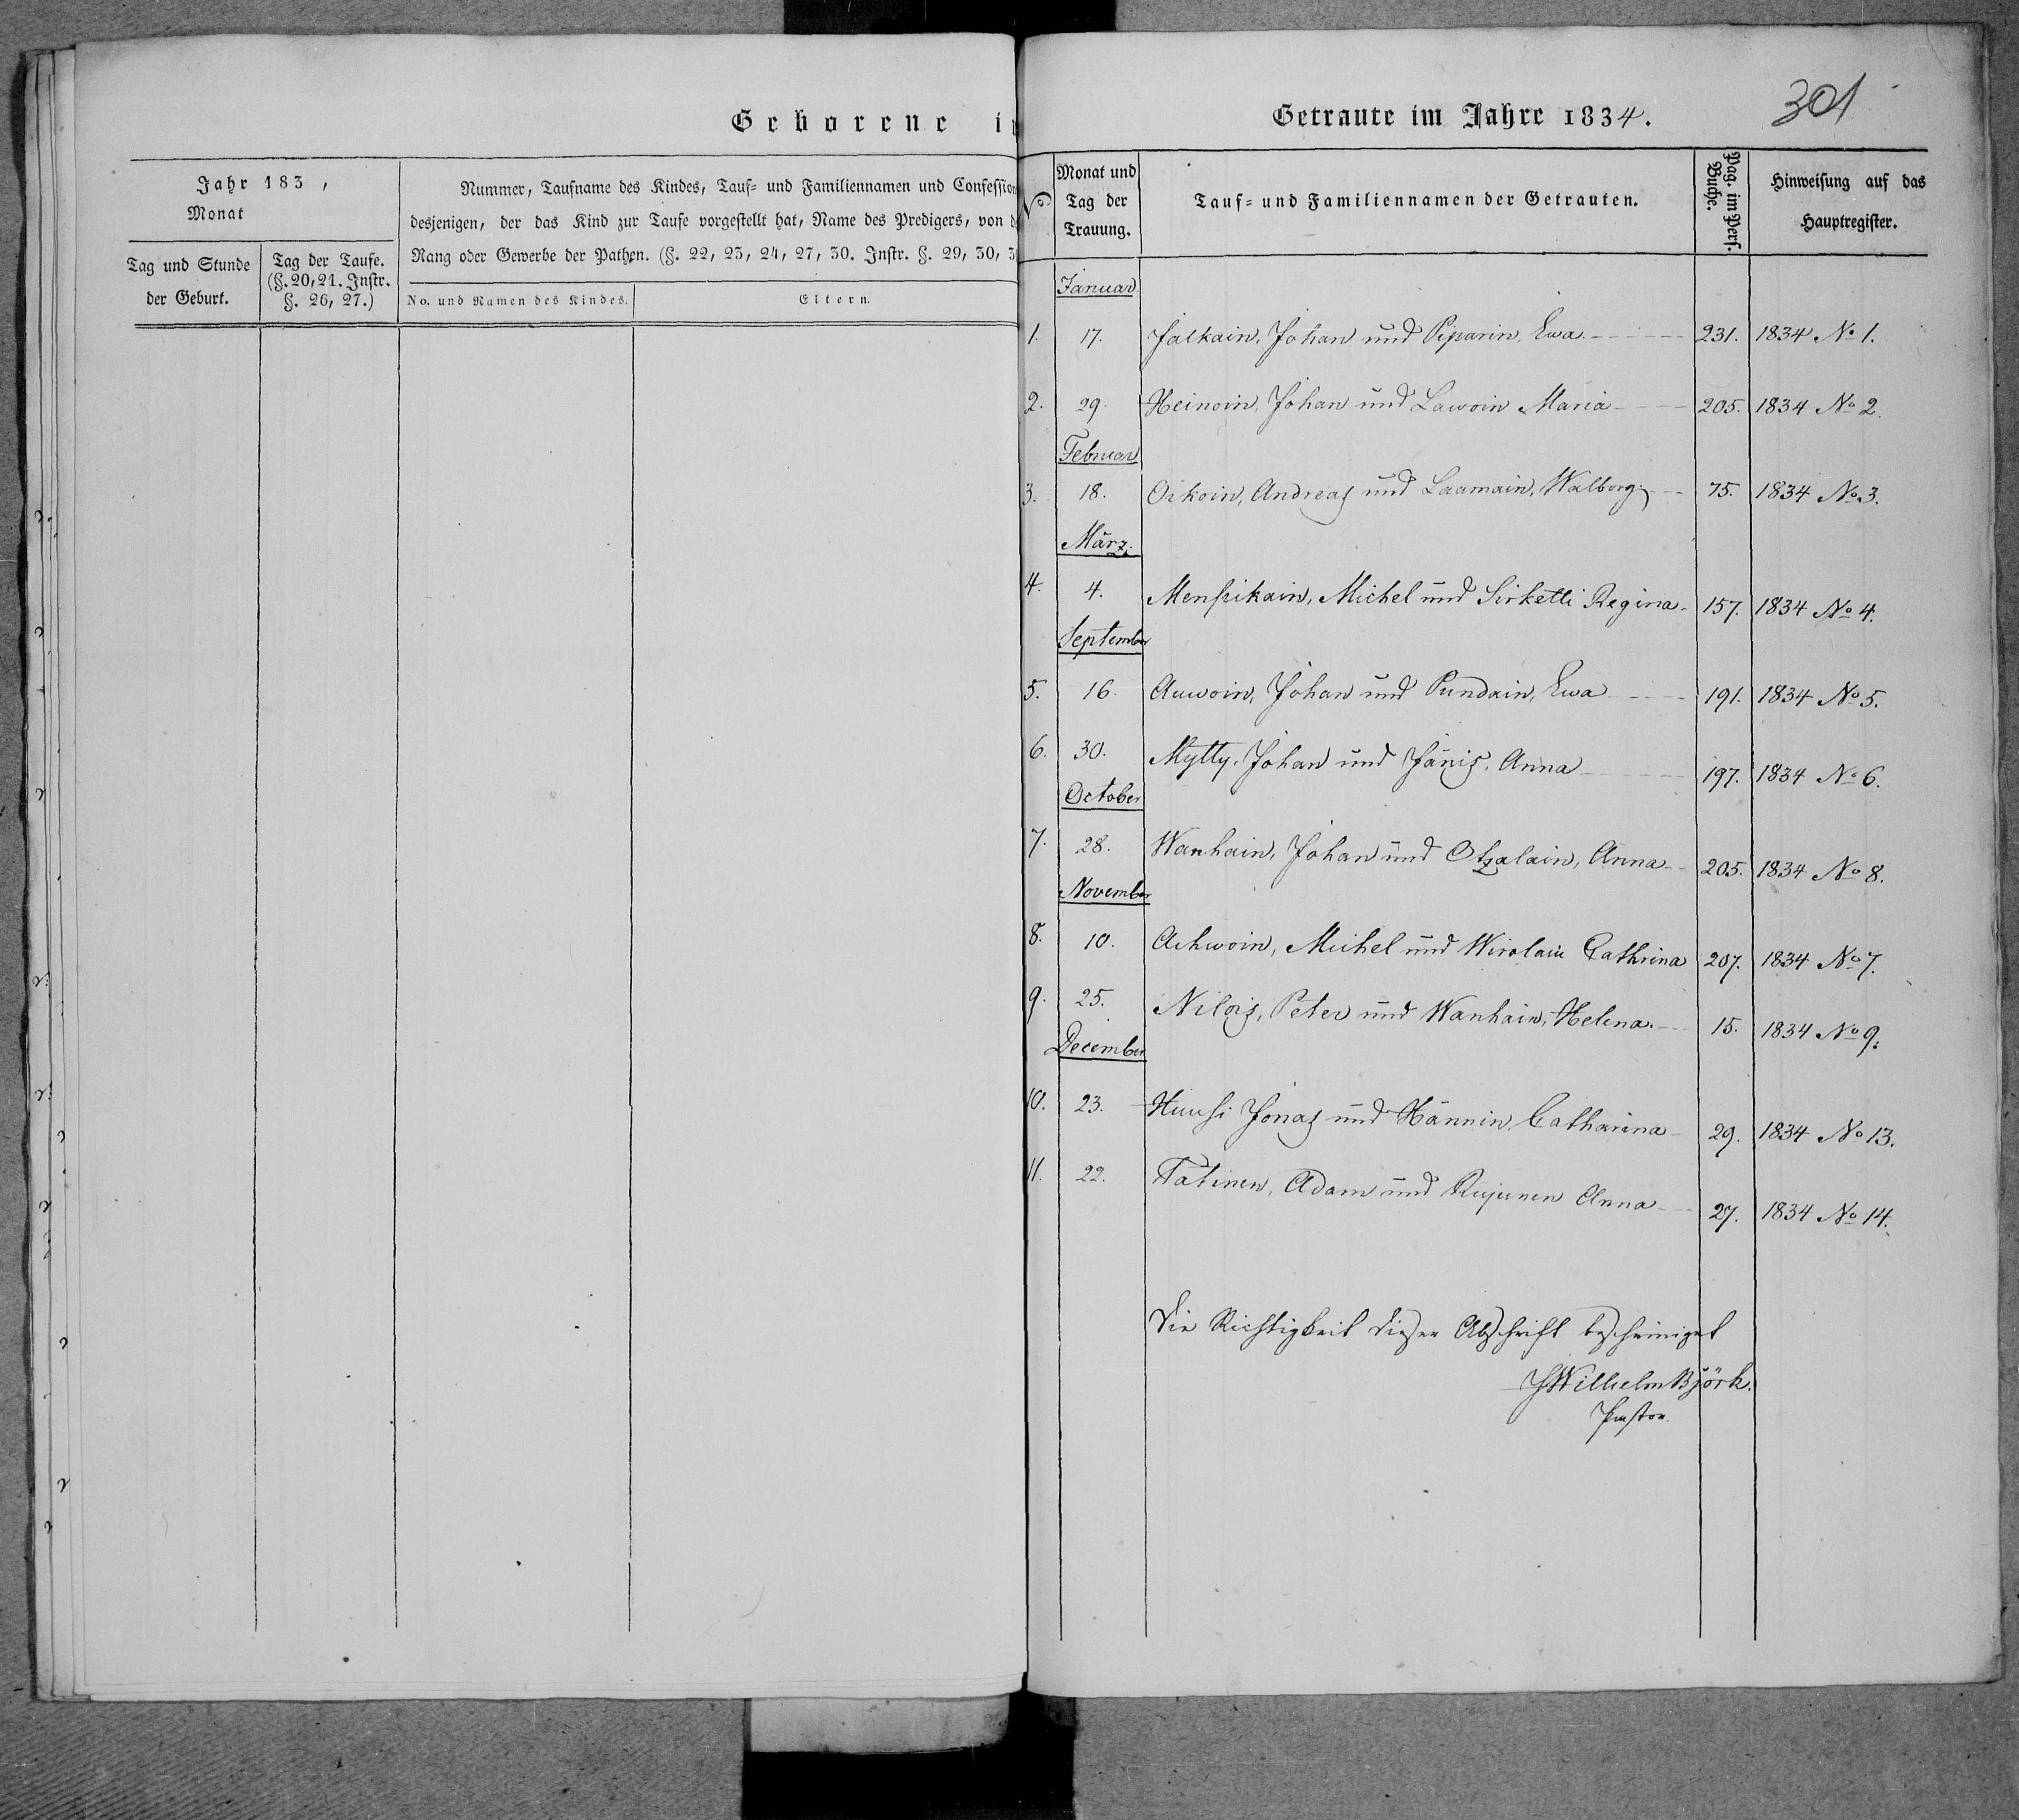 Geborene i
Jahr 183 ,
Monat
Tag und Stunde
der Geburt.
Tag der Taufe.
(§. 20, 21. Instr.
§. 26, 27.)
Nummer, Taufname des Kindes, Tauf- und Familiennamen und Confession
desjenigen, der das Kind zur Taufe vorgestellt hat, Name des Predigers, von
Rang oder Gewerbe der Pathen. (§. 22, 23, 24, 27, 30. Instr. §. 29, 30, 3
No. und Namen des Kindes.
Eltern.
301
Getraute im Jahre 1834.
No
Monat und
Tag der
Trauung.
Tauf- und Familiennamen der Getrauten.
Pag. im Pers.
Buche.
Hinweisung auf das
Hauptregister.
Januar
1. 17. Jalkain, Johan und Piparin, Ewa. 231. 1834 No 1.
2. 29. Heinoin, Johan und Lawoin Maria 205. 1834 No 2.
Februar
3. 18. Oikoin, Andreas und Laamain, Walborg 75. 1834 No 3.
März.
4. 4. Menschikain, Michel und Sirketti Regina 157. 1834 No 4.
September
5. 16. Auwoin, Johan und Pundain, Ewa 191. 1834 No 5.
6. 30. Mytty, Johan und Jänis, Anna 197. 1834 No 6.
October
7. 28. Wanhain, Johan und Otzalain, Anna 205. 1834 No 8.
November
8. 10. Achwoin, Michel und Wirolain Cathrina 207. 1834 No 7.
9. 25. Nilois, Peter und Wanhain, Helena. 15. 1834 No 9.
December
10. 23. Huusi Jonas und Hännin, Catharina 29. 1834 No 13.
11. 22. Tatinen, Adam und Rujunen Anna 27. 1834 No 14.
Die Richtigkeit dieser Abschrift bescheiniget
Wilhelm Björk.
Pastor.